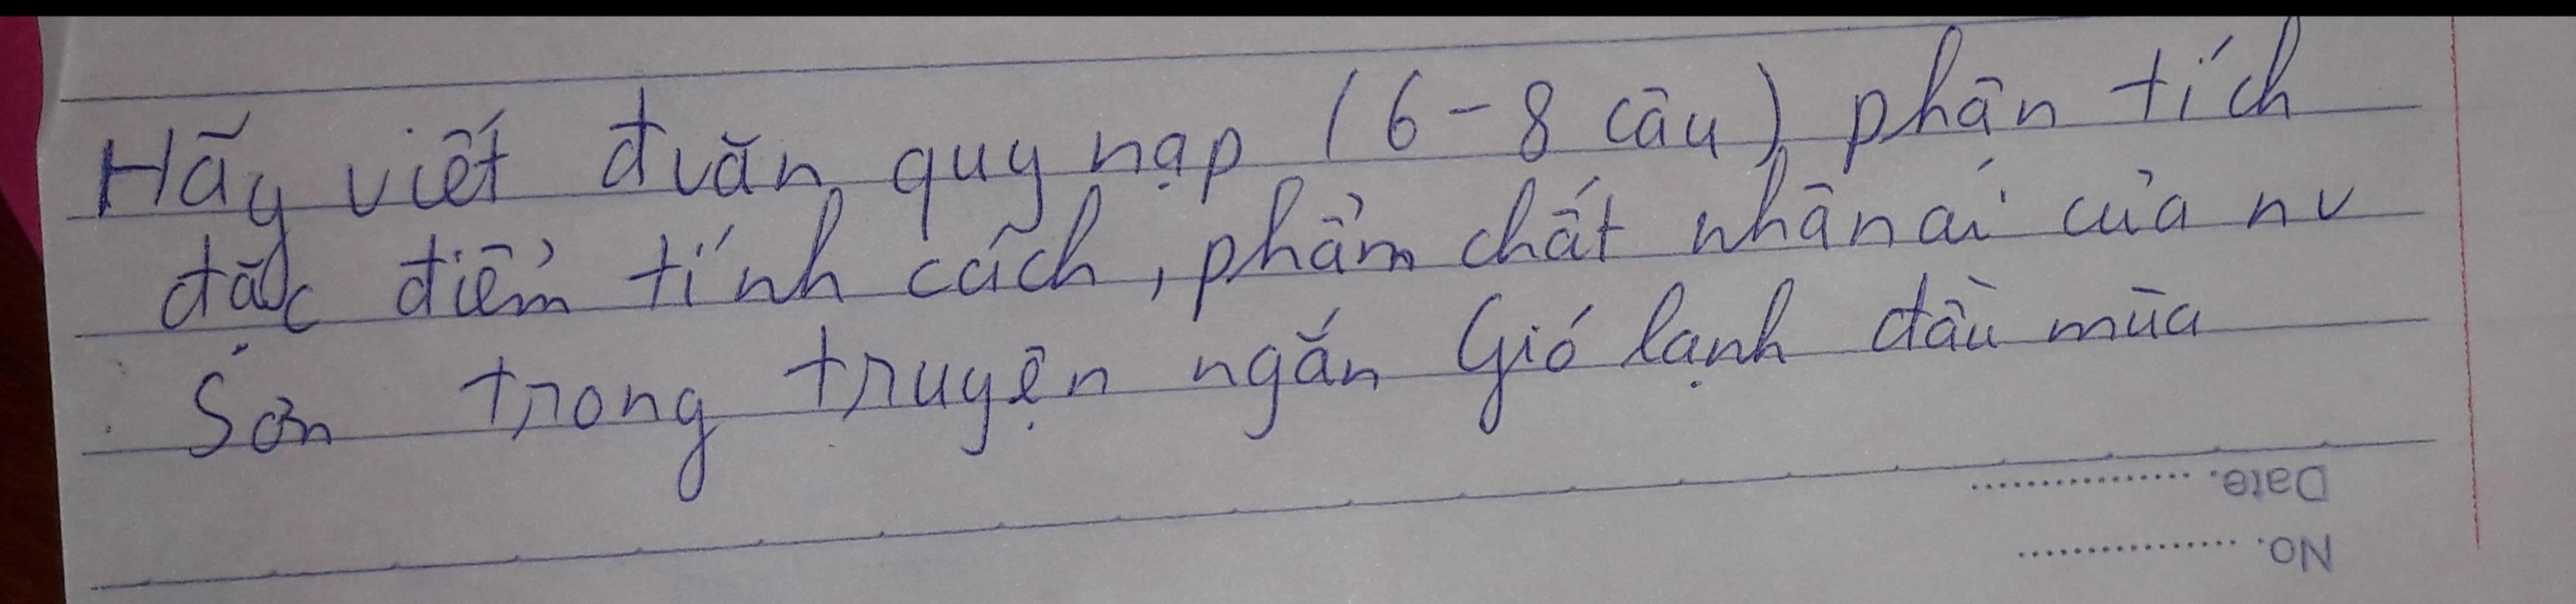 Hãy viết đvăn quy nạp (6-8 câu) phân tích
đặc điểm tính cách, phẩm chất nhân ái của nv
Sơn trong truyện ngắn Gió lạnh đầu mùa
Date. ................
No. ................